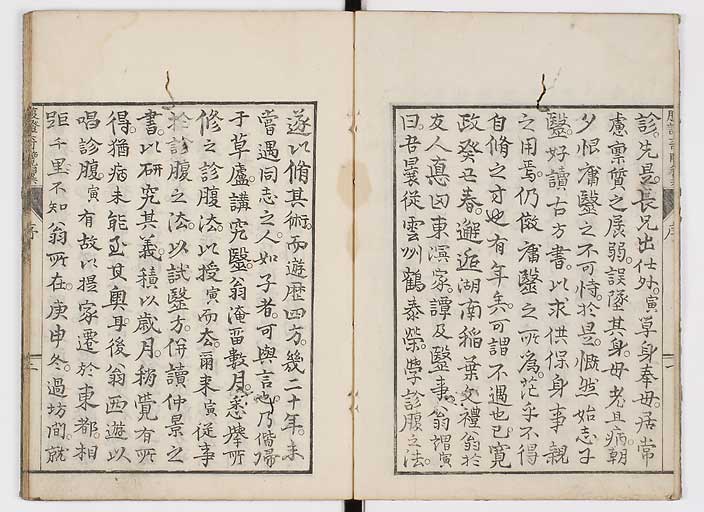 診。先是長兄出仕外。寅草身奉母。居常
慮稟質之孱弱。誤墜其身。母老且病。朝
夕恨庸醫之不可恃。於是慨然始志于
醫。好讀古方書。以求供保身事親
之用焉。仍倣庸醫之所為。茫乎不得
自脩之寸也。有年矣。可謂不遇也已。寛
政癸丑春。邂逅湖南稲葉文禮翁於
友人悳田東溟家。譚及醫事。翁謂寅
曰。吾曩従雲州鶴泰榮。學診腹之法。
遂以脩其術。而遊歴四方。幾二十年。未
嘗遇同志之人如子者。可與言也。乃偕帰
于草廬。講究醫。翁淹畱數月。悉擧所
修之診腹法。以授寅而去。爾来寅従事
於診腹之法。以試醫方。併讀仲景之
書。以研究其義。積以歳月。稍覺有所
得。猶病未能至其奥耳。後翁西遊以
唱診腹。寅有故以提家遷於東都。相
距千里。不知翁所在。庚申冬。過坊間。就
序